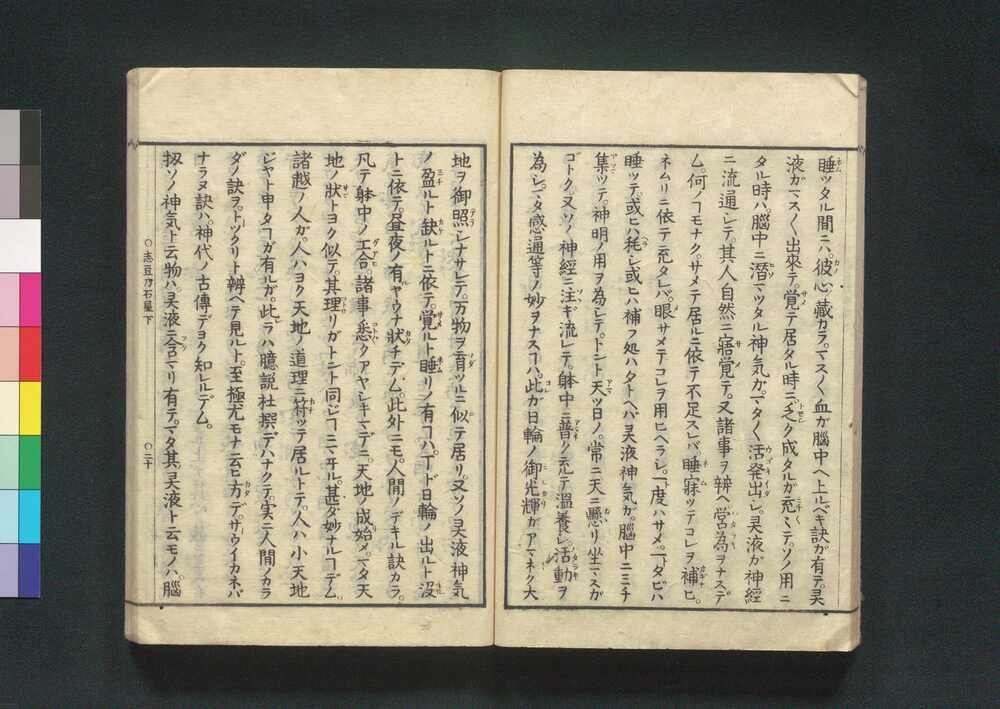 睡ツタル間ニハ。彼心藏カラ。マスく血ガ腦中ヘ上ルベキ訣ガ有テ。㚑
液ガマスく出來テ。覚テ居タル時ニ乏ク成タルガ充ミテ。ソノ用ニ
タル時ハ。腦中ニ潛マツタル神気ガ。マタく活発出シ。㚑液ガ神經
ニ流通シテ。其人自然ニ寤覚テ。又諸事ヲ辨ヘ営為ヲナスデ
ム。何ノヿモナク。サメテ居ルニ依テ不足スレバ。睡寐ツテコレヲ補ヒ。
ネムリニ依テ充タレバ。眼サメテコレヲ用ヒヘラシ。一度ハサメ。一タビハ
睡ツテ。或ヒハ耗シ或ヒハ補フ処ハ。タトヘバ㚑液神気ガ。腦中ニミチ
集ツテ。神明ノ用ヲ為シテ。トント天ツ日ノ。常ニ天ニ懸リ坐マスガ
ゴトク。又ソノ神經ニ注ギ流レテ。躰中ニ普ク充テ温養シ。活動ヲ
為シ。マタ感通等ノ妙ヲナスヿハ。此ガ日輪ノ御光輝ガアマネク大
地ヲ御照シナサレテ。万物ヲ育ツルニ似テ居リ。又ソノ㚑液神気
ノ盈ルト缺ルトニ依テ。覚ルト睡リノ有ヿハ。丁ド日輪ノ出ルト沒
トニ依テ。昼夜ノ有ヤウナ狀チデム。此外ニモ。人間ノデキル訣カラ。
凡テ躰中ノ工合。諸事悉クアヤシキマデニ。天地ノ成始メ。マタ天
地ノ狀トヨク似テ。其理リガトント同ジヿニマ升ル。甚ダ妙ナルヿデム。
諸越ノ人ガ。人ハヨク天地ノ道理ニ符ツテ居ルトテ。人ハ小天地
ジヤト申タヿガ有ルガ。此ラハ臆説杜撰デハナクテ。実ニ人間ノカラ
ダノ訣ヲ。トツクリト辨ヘテ見ルト。至極尤モナ云ヒ方デ。ザウイカネバ
ナラヌ訣ハ。神代ノ古傳デヨク知レルデム。
扨ソノ神気ト云物ハ。㚑液ニ含マリ有テ。マタ其㚑液ト云モノハ。腦
○志豆乃石屋下
○二十